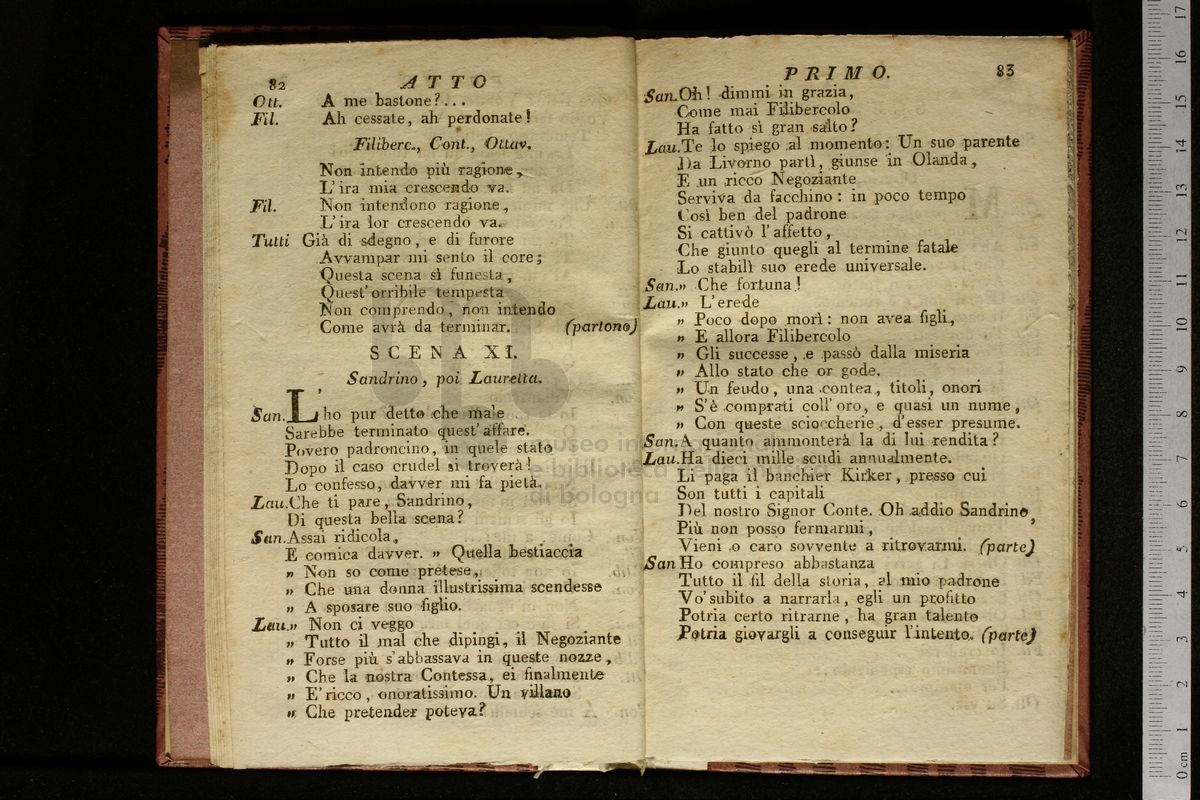 82 ATTO
Ott. A me bastone?...
Fil. Ah cessate, ah perdonate!
Filiberc., Cont., Ottav.
Non intendo più ragione,
L'ira mia crescendo va.
Fil. Non intendono ragione,
L'ira lor crescendo va.
Tutti Già di sdegno, e di furore
Avvampar mi sento il core;
Questa scena sì funesta,
Quest'orribile tempesta
Non comprendo, non intendo
Come avrà da terminar. (partono)
SCENA XI.
Sandrino, poi Lauretta.
San. L'ho pur detto che male
Sarebbe terminato quest'affare.
Povero padroncino, in quele stato
Dopo il caso crudel si troverà!
Lo confesso, davver mi fa pietà.
Lau. Che ti pare, Sandrino,
Di questa bella scena?
San. Assai ridicola,
E comica davver. „ Quella bestiaccia
„ Non so come pretese,
„ Che una donna illustrissima scendesse
„ A sposare suo figlio.
Lau. „ Non ci veggo
„ Tutto il mal che dipingi, il Negoziante
„ Forse più s'abbassava in queste nozze,
„ Che la nostra Contessa, ei finalmente
„ E' ricco, onoratissimo. Un villano
„ Che pretender poteva?
PRIMO. 83
San. Oh! dimmi in grazia,
Come mai Filibercolo
Ha fatto sì gran salto?
Lau. Te lo spiego al momento: Un suo parente
Da Livorno partì, giunse in Olanda,
E un ricco Negoziante
Serviva da facchino: in poco tempo
Così ben del padrone
Si cattivò l'affetto,
Che giunto quegli al termine fatale
Lo stabilì suo erede universale.
San. „ Che fortuna!
Lau. „ L'erede
„ Poco dopo morì: non avea figli,
„ E allora Filibercolo
„ Gli successe, e passò dalla miseria
„ Allo stato che or gode.
„ Un feudo, una contea, titoli, onori
„ S'è comprati coll'oro, e quasi un nume,
„ Con queste scioccherie, d'esser presume.
San. A quanto ammonterà la di lui rendita?
Lau. Ha dieci mille scudi annualmente.
Li paga il banchier Kirker, presso cui
Son tutti i capitali
Del nostro Signor Conte. Oh addio Sandrino,
Più non posso fermarmi,
Vieni o caro sovvente a ritrovarmi. (parte)
San Ho compreso abbastanza
Tutto il fil della storia, al mio padrone
Vo' subito a narrarla, egli un profitto
Potria certo ritrarne, ha gran talento
Potria giovargli a conseguir l'intento. (parte)
museo in
e biblioteca della musica
di bologna
0 cm 1 2 3 4 5 6 7 8 9 10 11 12 13 14 15 16 17